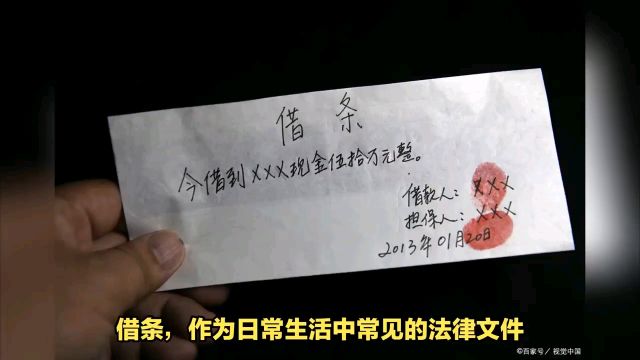 借条
今借到XXX现金伍拾万元整。
借款人：XXX
担保人：XXX
2013年01月20日
借条，作为日常生活中常见的法律文件
©百家号／视觉中国